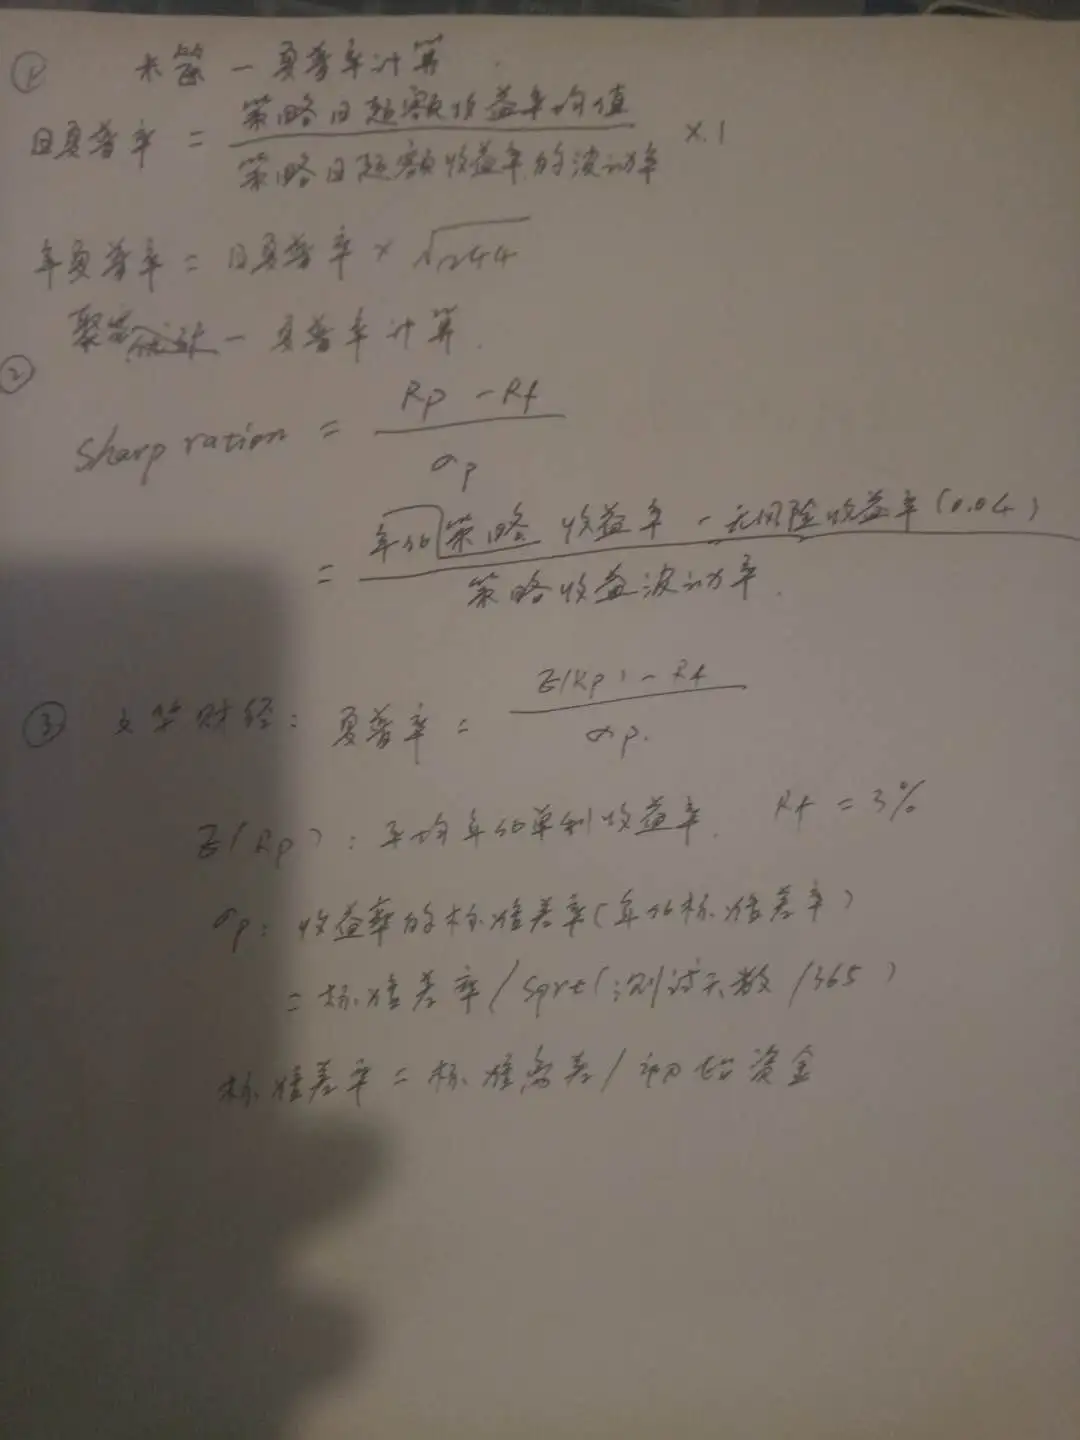 ① 米筐 — 夏普率计算
日夏普率 = 策略日超额收益率均值 / 策略日超额收益率的波动率 × 1
年夏普率 = 日夏普率 × √244
② 聚宽 — 夏普率计算.
Sharp ration = Rp - Rf / σp
= 年化策略 收益率 - 无风险收益率(0.04) / 策略收益波动率.
③ 文华财经: 夏普率 = E(Rp) - Rf / σp.
E(Rp): 平均年化单利收益率. Rf = 3%
σp: 收益率的标准差率(年化标准差率)
= 标准差率/Sqrt(测试天数/365)
标准差率 = 标准离差/初始资金